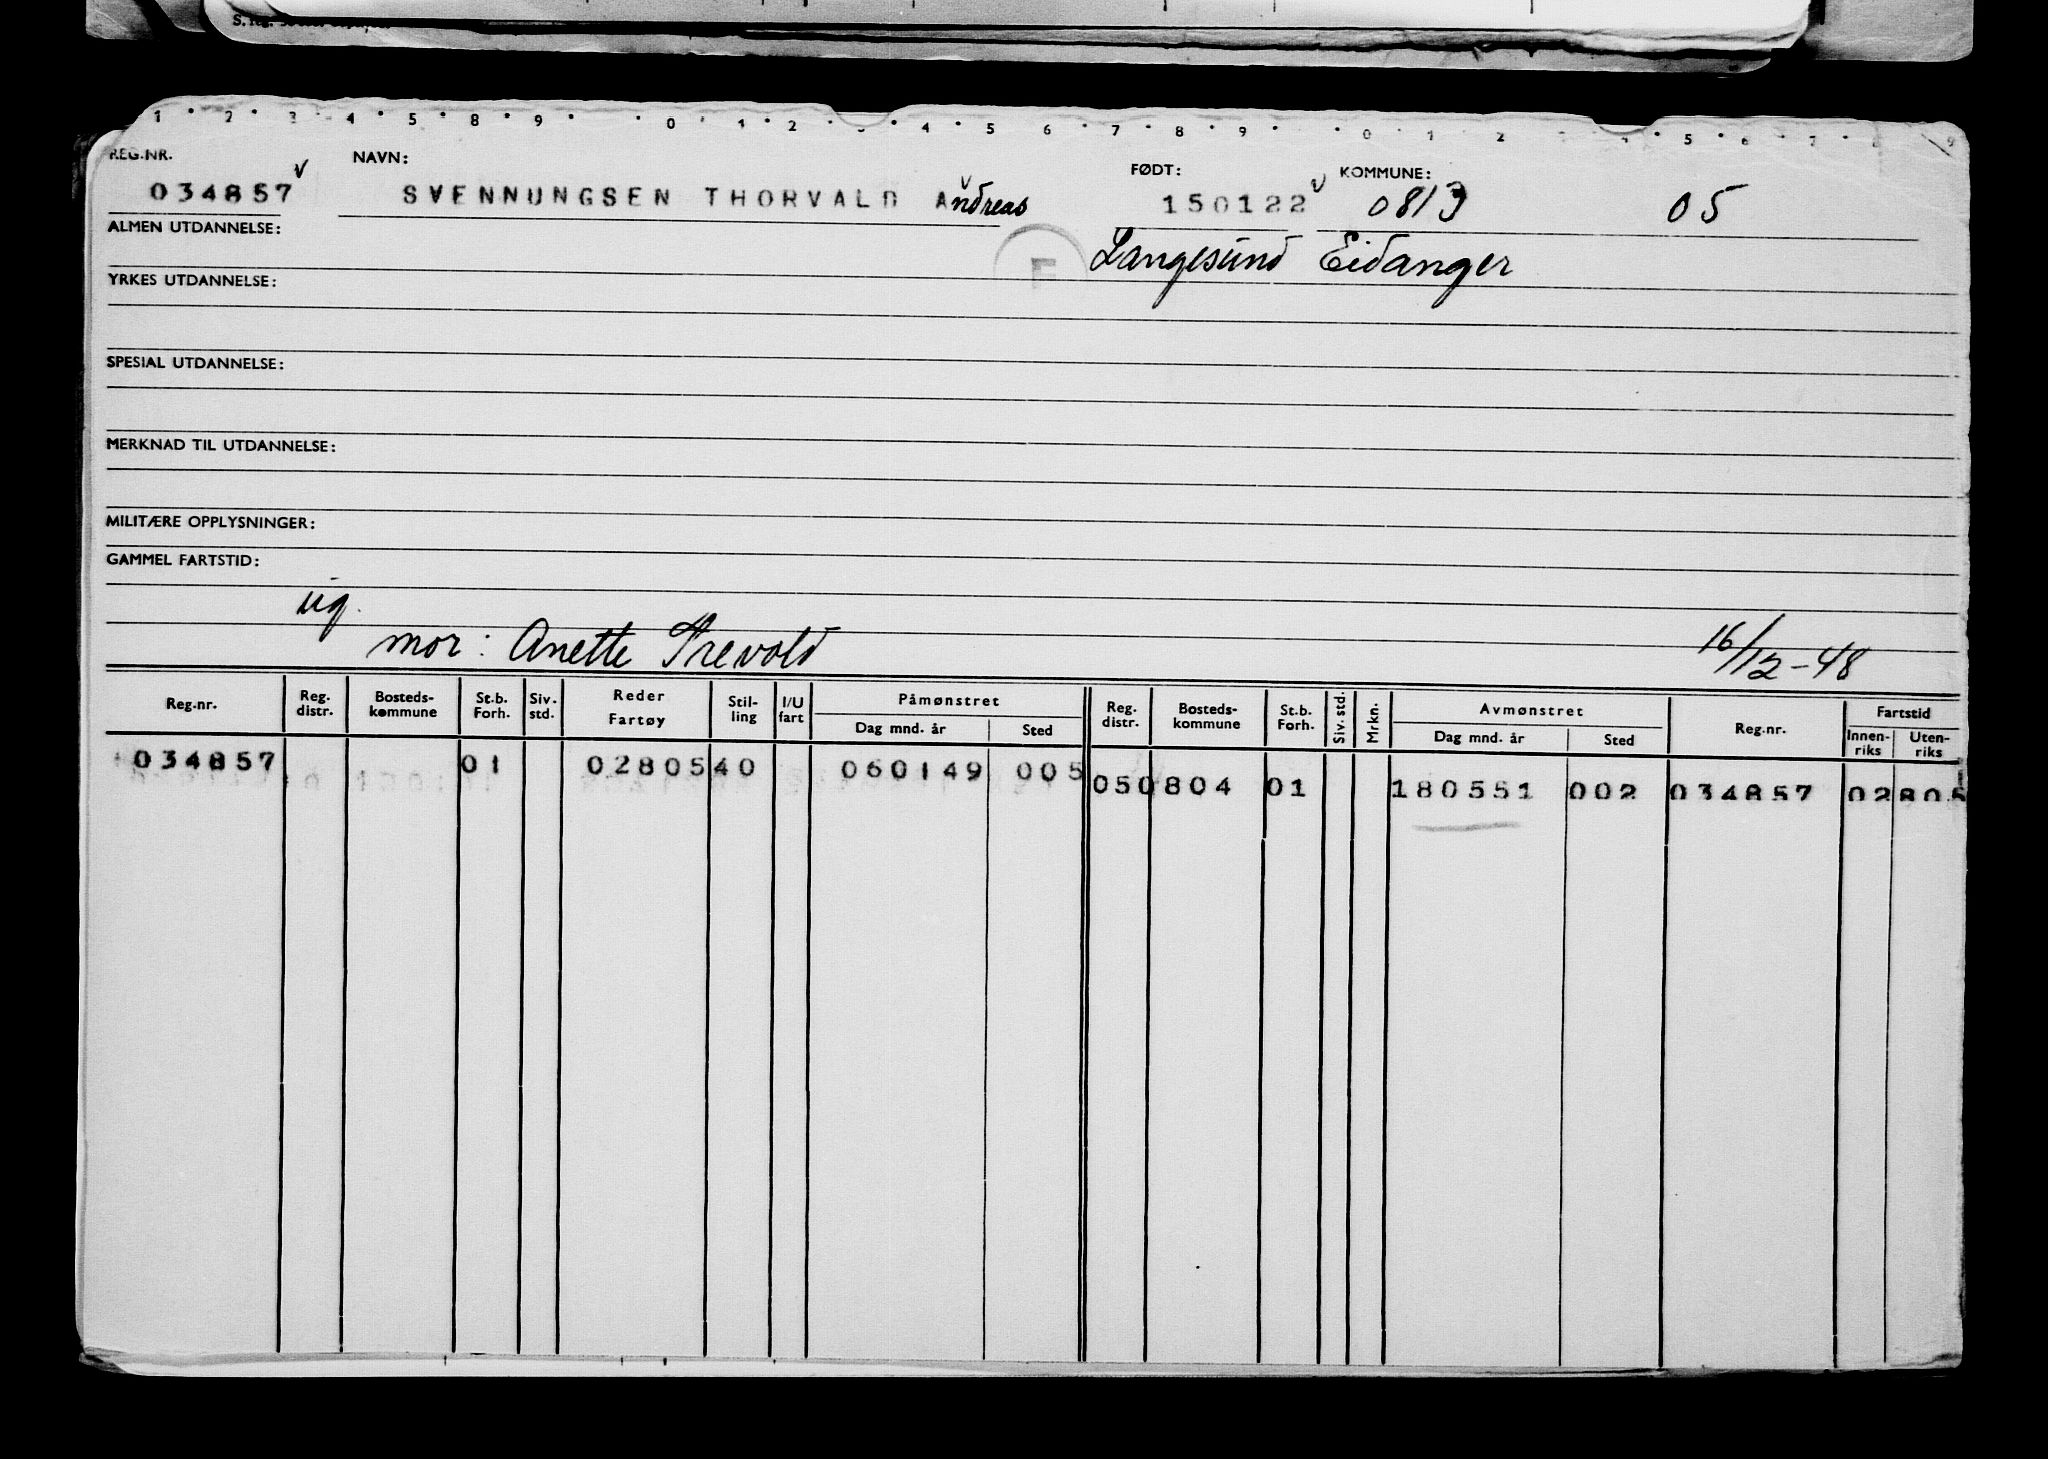 1 2 3 4 5 8 9 0 1 2 4 5 6 7 8 9 0 1 2 4 5 6 7 8 9
REG.NR. NAVN: FØDT: KOMMUNE:
034857 SVENNUNGSEN THORVALD Andreas 150122 0813 05
ALMEN UTDANNELSE: Langesund Eidanger
F
YRKES UTDANNELSE:
SPESIAL UTDANNELSE:
MERKNAD TIL UTDANNELSE:
MILITÆRE OPPLYSNINGER:
GAMMEL FARTSTID:
ug.
mor: Anette Trevold 16/12-48
Reg.nr. Reg. distr. Bosteds-kommune St.b. Forh. Siv. std. Reder Fartøy Stil-ling I/U fart Påmønstret Dag mnd. år Sted Reg. distr. Bosteds-kommune St.b. Forh. Siv. std. Mrkn. Avmønstret Dag mnd. år Sted Reg.nr. Fartstid Innen-riks Uten-riks
034857 01 0280540 060149 005 050804 01 180551 002 034857 02805